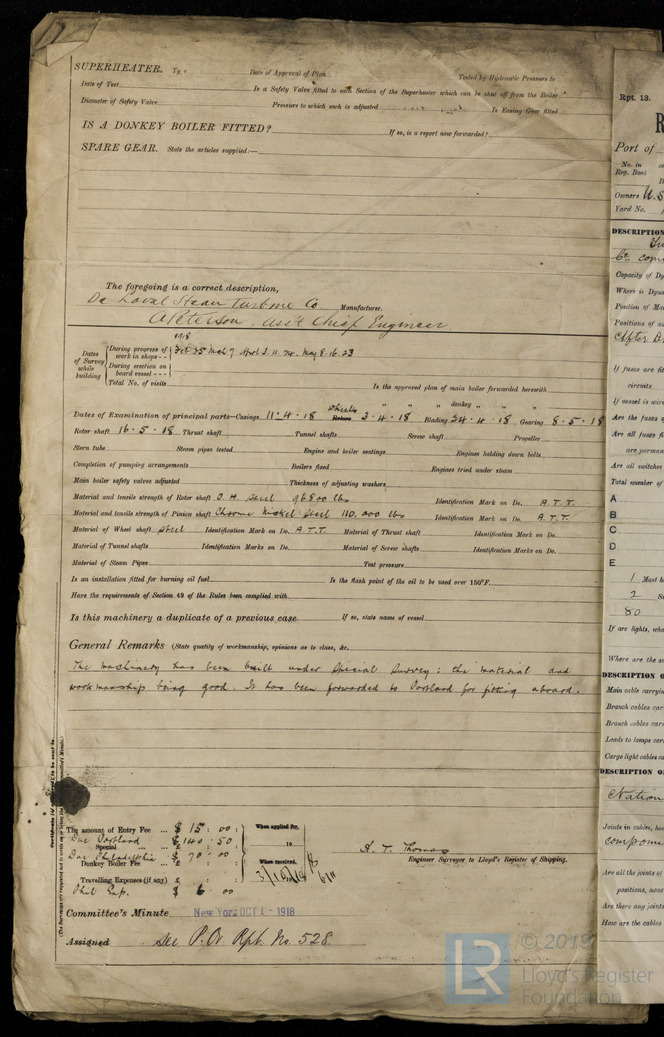 SUPERHEATER. Type Date of Approval of Plan Tested by Hydraulic Pressure to
Date of Test Is a Safety Valve fitted to each Section of the Superheater which can be shut off from the Boiler
Diameter of Safety Valve Pressure to which each is adjusted Is Easing Gear fitted
IS A DONKEY BOILER FITTED? If so, is a report now forwarded?
SPARE GEAR. State the articles supplied:—
The foregoing is a correct description,
De Laval Steam Turbine Co Manufacturer.
A Peterson, Ass't Chief Engineer
1918
Dates of Survey while building
During progress of work in shops - - Feb 25 Mch 7 April 3. 11. 24. May 8. 16. 23
During erection on board vessel - - -
Total No. of visits
Is the approved plan of main boiler forwarded herewith
" " " donkey " " "
Dates of Examination of principal parts—Casings 11·4·18 Wheels 3·4·18 Blading 24·4·18 Gearing 8·5·18
Rotor shaft 16·5·18 Thrust shaft Tunnel shafts Screw shaft Propeller
Stern tube Steam pipes tested Engine and boiler seatings Engines holding down bolts
Completion of pumping arrangements Boilers fixed Engines tried under steam
Main boiler safety valves adjusted Thickness of adjusting washers
Material and tensile strength of Rotor shaft O. H. Steel 96800 lbs Identification Mark on Do. A.T.T.
Material and tensile strength of Pinion shaft Chrome Nickel Steel 110.000 lbs Identification Mark on Do. A.T.T.
Material of Wheel shaft Steel Identification Mark on Do. A.T.T. Material of Thrust shaft Identification Mark on Do.
Material of Tunnel shafts Identification Marks on Do. Material of Screw shafts Identification Marks on Do.
Material of Steam Pipes Test pressure
Is an installation fitted for burning oil fuel Is the flash point of the oil to be used over 150°F.
Have the requirements of Section 49 of the Rules been complied with
Is this machinery a duplicate of a previous case If so, state name of vessel
General Remarks (State quality of workmanship, opinions as to class, &c.
The machinery has been built under Special Survey: the material and
workmanship being good. It has been forwarded to Portland for fitting aboard.
The amount of Entry Fee ... $ 15 : 00 : When applied for,
Due Portland Special ... $ 140 : 50 : 19
Due Philadelphia Donkey Boiler Fee ... $ 70 : 00 : When received,
Travelling Expenses (if any) £
Phil Exp. $ 6 : 00
A. T. Thomas
Engineer Surveyor to Lloyd's Register of Shipping.
Committee's Minute New York OCT 1 - 1918
Assigned See P.O. Rpt. No. 528
Rpt. 13.
R
Port of
No. in
Reg. Book
Owners U.S
Yard No.
DESCRIPTION
Capacity of Dy
Where is Dyna
Position of Ma
Positions of au
After D
If fuses are fit
circuits
If vessel is wire
Are the fuses o
Are all fuses fi
are perman
Are all switches
Total number of
A
B
C
D
E
1 Mast h
2 Si
80
If arc lights, wha
Where are the s
DESCRIPTION O
Main cable carryin
Branch cables car
Branch cables car
Leads to lamps car
Cargo light cables ca
DESCRIPTION O
Nation
Joints in cables, ho
compound
Are all the joints of
positions, none
Are there any joints
How are the cables
LR © 2019
Lloyd's Register
Foundation